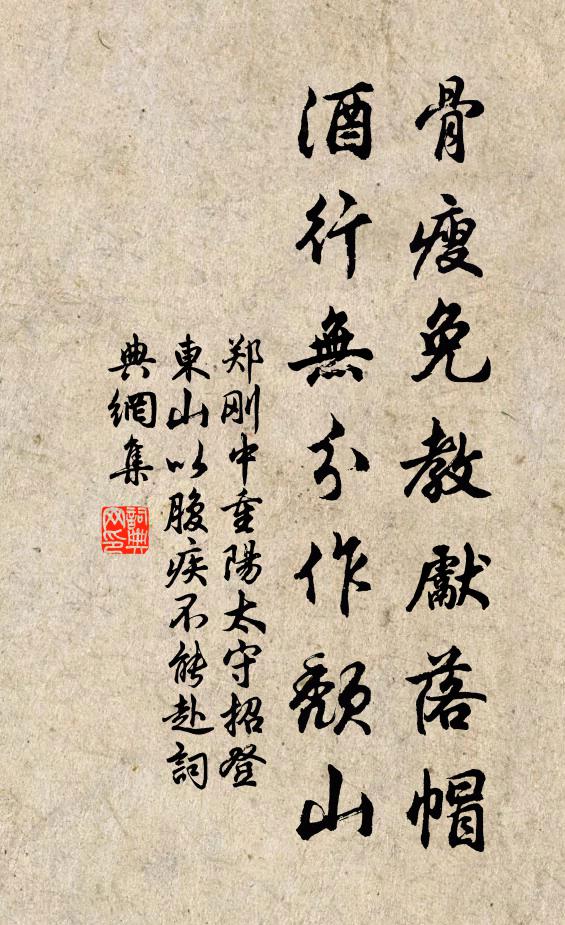 骨瘦免教獻落帽
酒行無分作頹山
郑刚中重陽太守招登
東山以腹疾不能赴詞
典網集
詞典网印